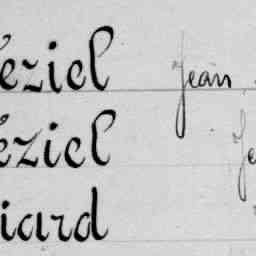 éziel Jean
éziel Je
iard